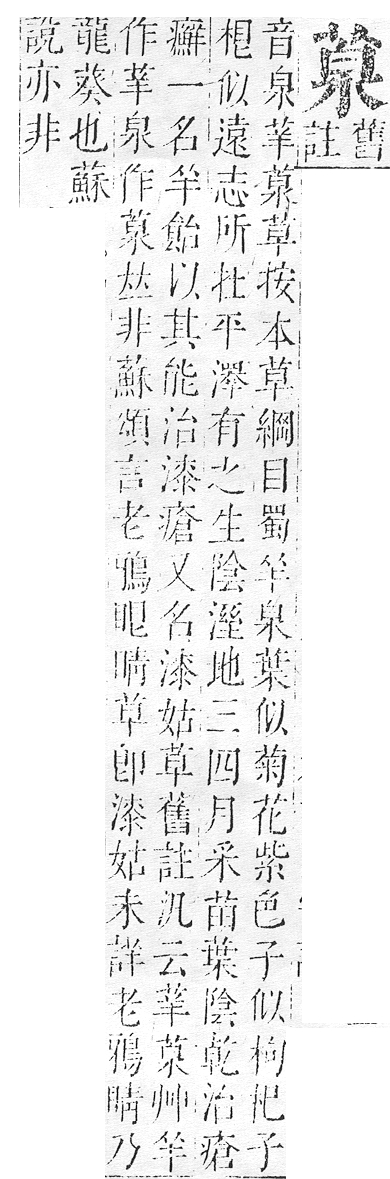 葲舊註
音泉䓺葲草按本草綱目蜀羊泉葉似菊花紫色子似枸杞子
根似遠志所在平澤有之生陰溼地三四月采苗葉陰乾治瘡
癬一名羊飴以其能治漆瘡又名漆姑草舊註汎云䓺葲艸羊
作䓺泉作葲𠀤非蘇頌言老鴉眼睛草卽漆姑未詳老鴉睛乃
龍葵也蘇
說亦非